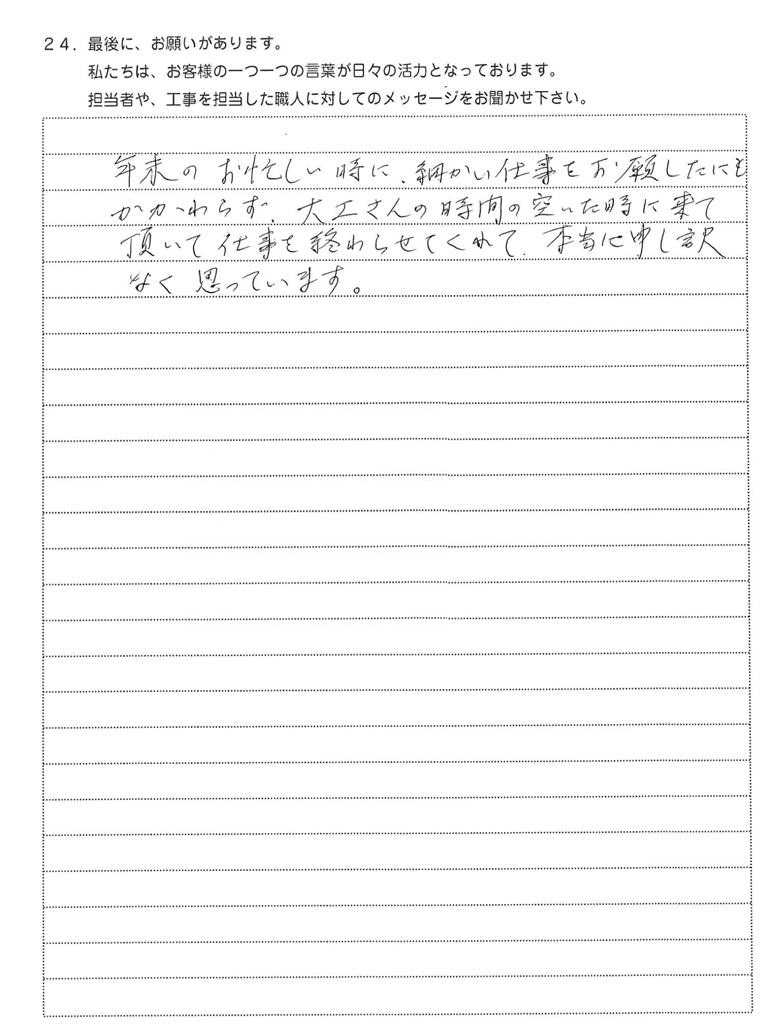 24．最後に、お願いがあります。
私たちは、お客様の一つ一つの言葉が日々の活力となっております。
担当者や、工事を担当した職人に対してのメッセージをお聞かせ下さい。
年末の お忙しい時に、細かい仕事をお願したにも
かかわらず、大工さんの時間の空いた時に来て
頂いて仕事を終わらせてくれて、本当に申し訳
なく思っています。